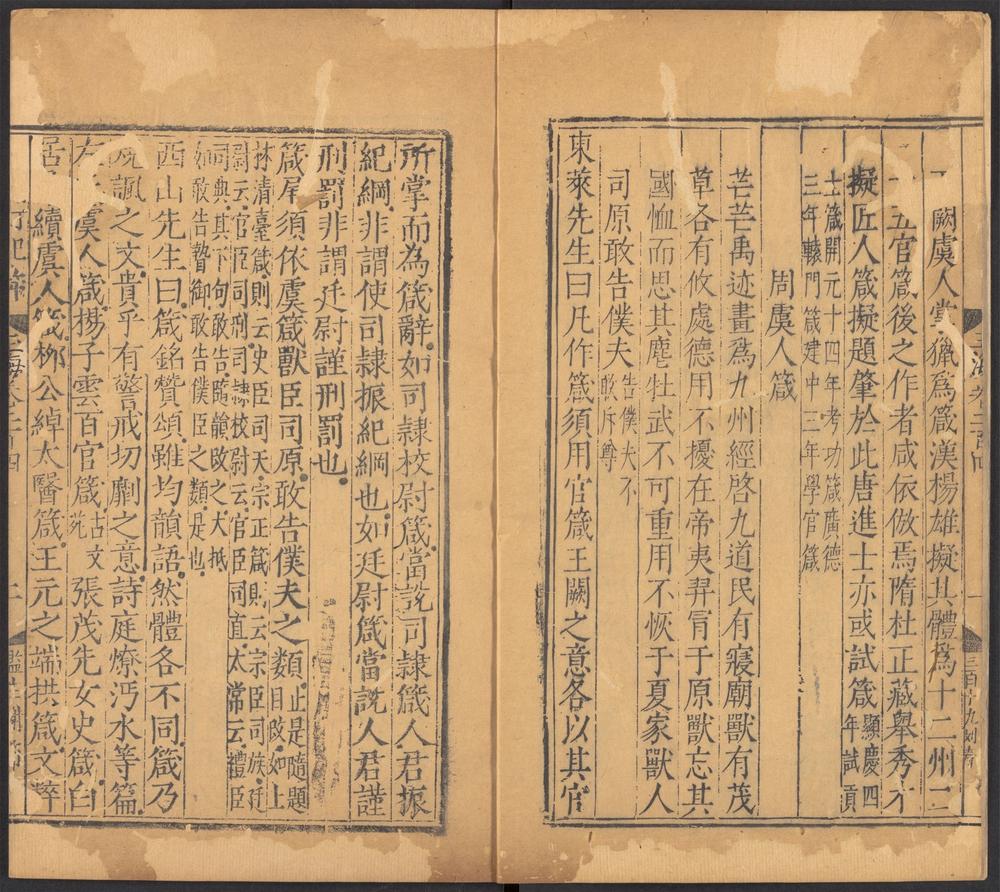 闕虞人掌獵爲箴漢楊雄擬其體爲十二州二
五官箴後之作者咸依倣焉隋杜正藏舉秀才
擬匠人箴擬題肇於此唐進士亦或試箴顯慶四年試貢
士箴開元十四年考功箴廣德
三年轅門箴建中三年學官箴
周虞人箴
芒芒禹迹畫爲九州經啓九道民有寢廟獸有茂
草各有攸處德用不擾在帝夷羿冐于原獸忘其
國恤而思其麀牡武不可重用不恢于夏家獸人
司原敢告僕夫告僕夫不敢斥尊
東萊先生曰凡作箴須用官箴王闕之意各以其官
所掌而為箴辭如司隸校尉箴當說司隸箴人君振
紀綱非謂使司隸振紀綱也如廷尉箴當說人君謹
刑罰非謂廷尉謹刑罰也
箴尾須依虞箴獸臣司原敢告僕夫之類止是隨題目改如上
林清臺箴則云史臣司天宗正箴則云宗臣司族廷
尉云官臣司刑司隸校尉云官臣司直太常云禮臣
司典其下句敢告臨韻改之大抵
如敢告贄御敢告僕臣之類是也
西山先生曰箴銘贊頌雖均韻語然體各不同箴乃
規諷之文貴乎有警戒切劘之意詩庭燎沔水等篇
左 虞人箴揚子雲百官箴古文苑張茂先女史箴白
居 續虞人箴柳公綽太醫箴王元之端拱箴文粹